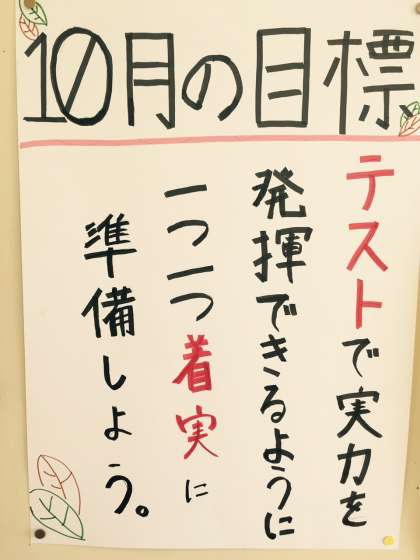 10月の目標
テストで実力を
発揮できるように
一つ一つ着実に
準備しよう。